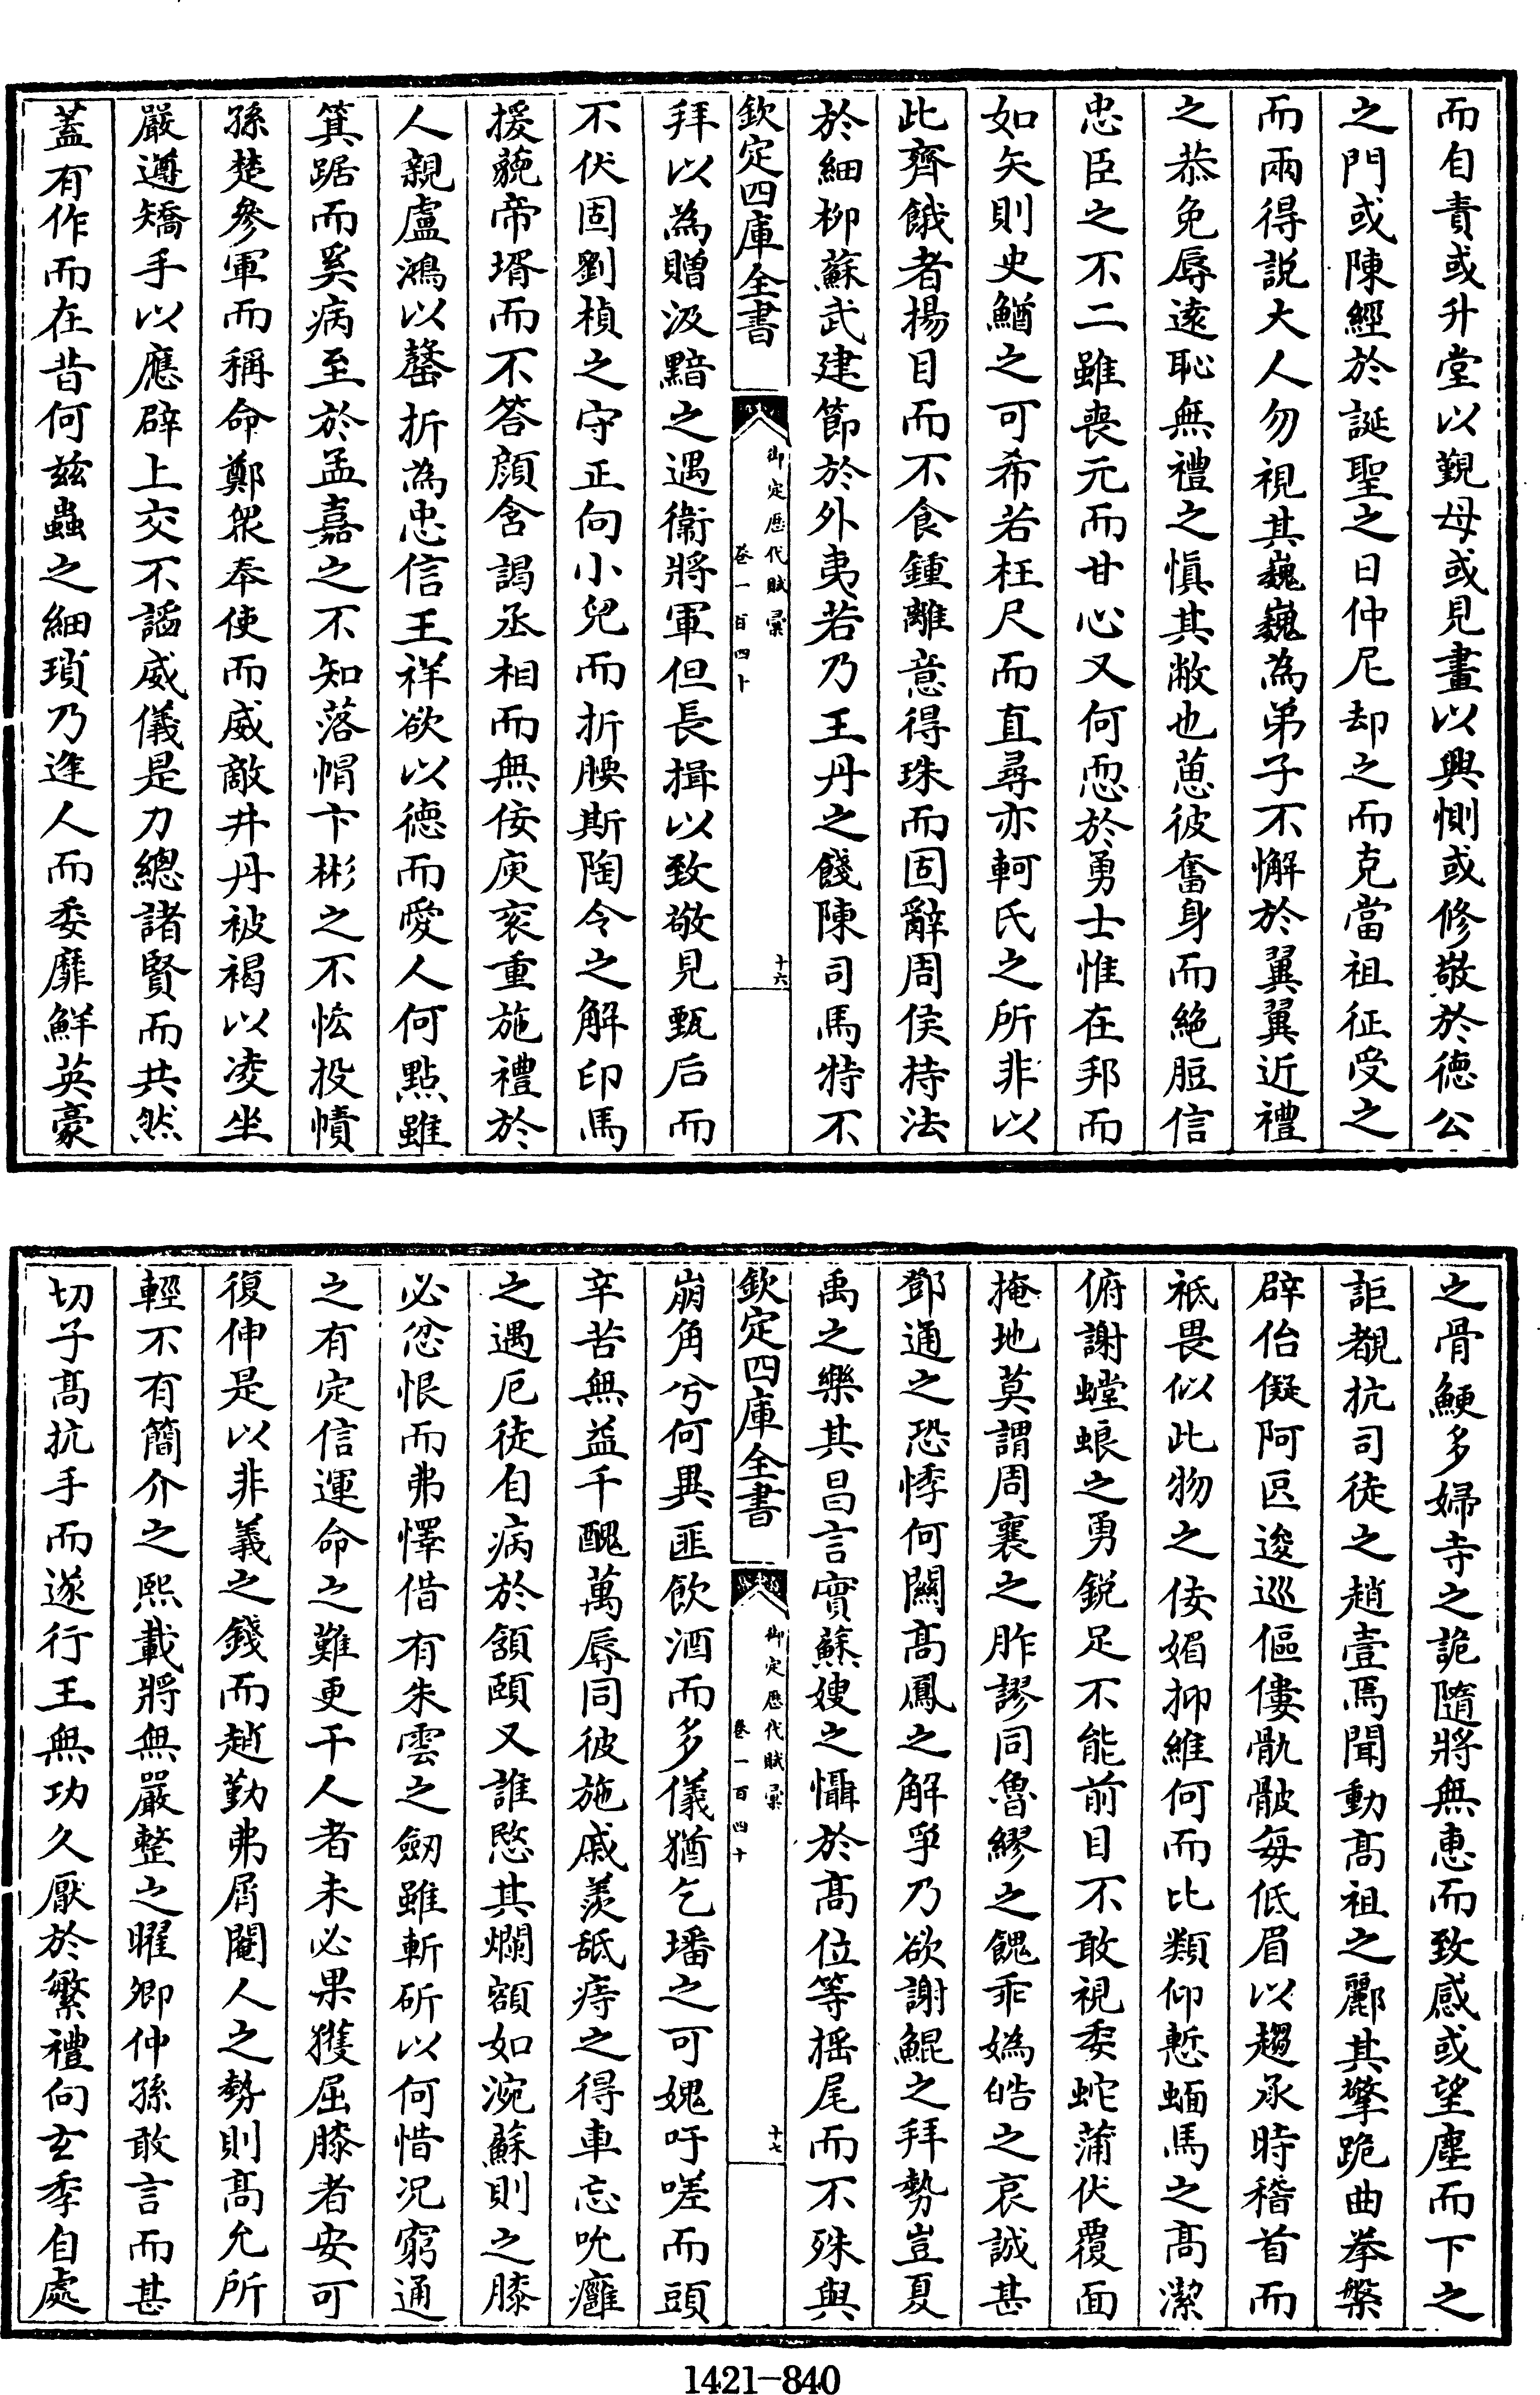 而自責或升堂以覲母或見畫以興惻或修敬於德公
之門或陳經於誕聖之日仲尼却之而克當祖征受之
而兩得説大人勿視其巍巍為弟子不懈於翼翼近禮
之恭免辱逺恥無禮之慎其敝也葸彼奮身而絶脰信
忠臣之不二雖喪元而甘心又何恧於勇士惟在邦而
如矢則史鰌之可希若枉尺而直尋亦軻氏之所非以
此齊餓者揚目而不食鍾離意得珠而固辭周侯持法
於細柳蘇武建節於外夷若乃王丹之餞陳司馬特不
欽定四庫全書
御定歷代賦彙
卷一百四十
十六
拜以為贈汲黯之遇衞將軍但長揖以致敬見甄后而
不伏固劉楨之守正向小兒而折腰斯陶令之解印馬
援藐帝壻而不答顔含謁丞相而無佞庾衮重施禮於
人親盧鴻以罄折為忠信王祥欲以德而愛人何點雖
箕踞而奚病至於孟嘉之不知落帽卞彬之不恡投幘
孫楚參軍而稱命鄭衆奉使而威敵井丹被褐以凌坐
嚴遵矯手以應辟上交不謟威儀是力總諸賢而共然
蓋有作而在昔何兹蟲之細瑣乃逢人而委靡鮮英豪
之骨鯁多婦寺之詭隨將無恵而致感或望塵而下之
詎覩抗司徒之趙壹焉聞動髙祖之酈其擎跪曲拳槃
辟佁儗阿匼逡巡傴僂骫骳每低眉以趨承時稽首而
祗畏似此物之佞媚抑維何而比類仰慙蝒馬之髙潔
俯謝螳蜋之勇鋭足不能前目不敢視委蛇蒲伏覆面
掩地莫謂周襄之胙謬同魯繆之餽乖媯皓之哀誠甚
鄧通之恐悸何闗髙鳳之解爭乃欲謝鯤之拜勢豈夏
禹之樂其昌言實蘇嫂之懾於髙位等揺尾而不殊與
欽定四庫全書
御定歷代賦彙
卷一百四十
十七
崩角兮何異匪飲酒而多儀猶乞墦之可媿吁嗟而頭
辛苦無益千醜萬辱同彼施戚羡舐痔之得車忘吮癰
之遇厄徒自病於頷頤又誰愍其爛額如涴蘇則之膝
必忿恨而弗懌借有朱雲之劒雖斬斫以何惜况窮通
之有定信運命之難更千人者未必果獲屈膝者安可
復伸是以非義之錢而趙勤弗屑閹人之勢則髙允所
輕不有簡介之熙載將無嚴整之曜卿仲孫敢言而甚
切子髙抗手而遂行王無功久厭於繁禮向玄季自處
1421-840